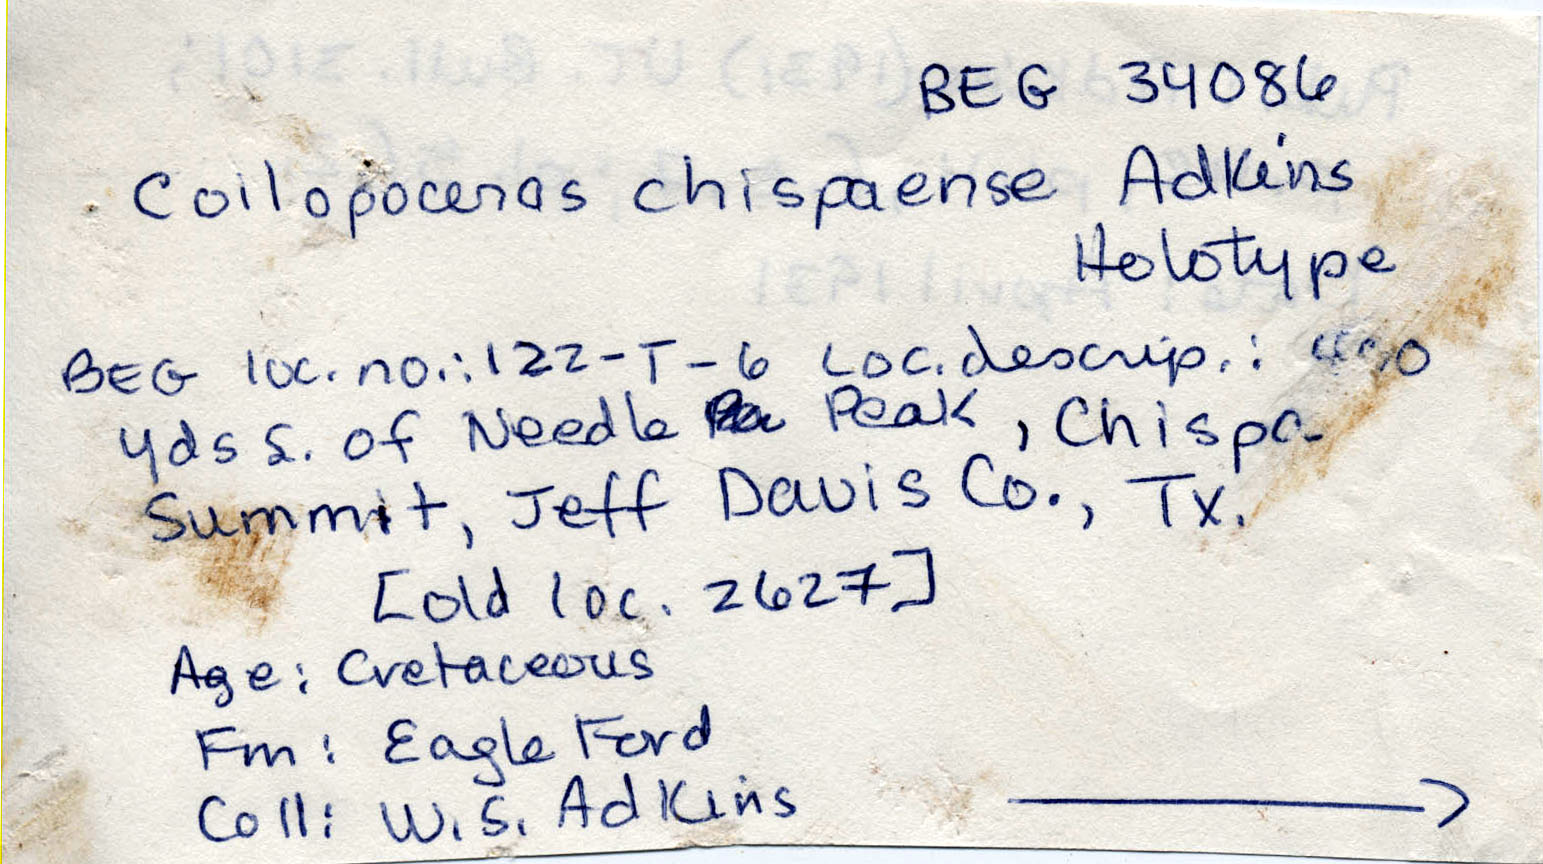 BEG 34086
Coilopoceras chispaense Adkins
Holotype
BEG loc. no.: 122-T-6 Loc. descrip.:
yds S. of Needle Peak, Chispa
Summit, Jeff Davis Co., Tx.
[old loc. 2627]
Age: Cretaceous
Fm: Eagle Ford
Coll: W. S. Adkins